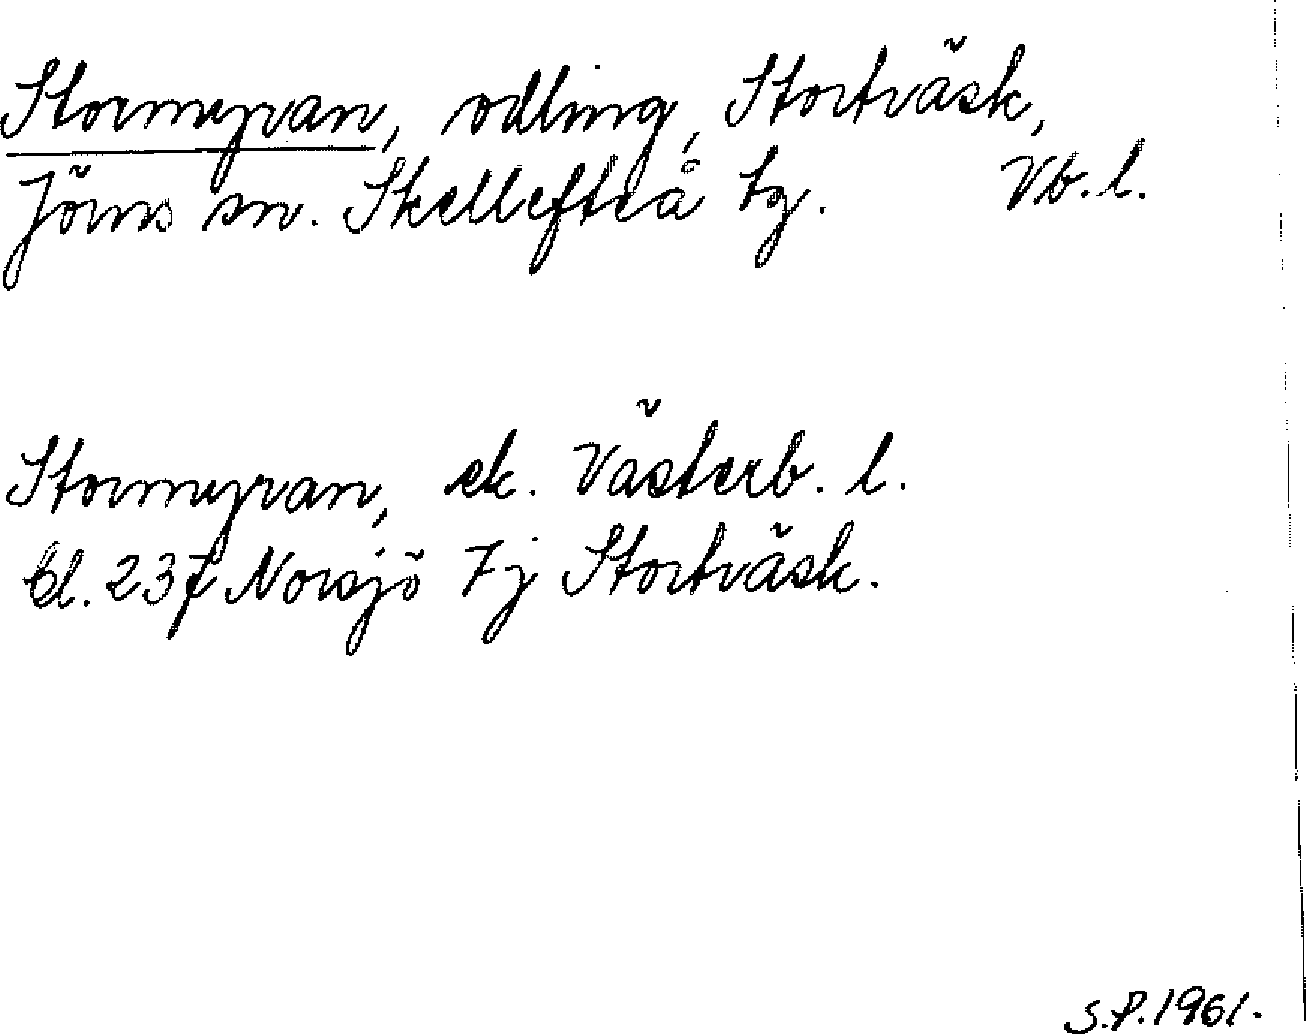 Stormyran, odling, Stortväsk,
Jörns sn. Skellefteå tg. Vb. l.
Stormyran, ek. Västerb. l.
bl. 237 Norsjö 7j Stortväsk.
S.P. 1961.